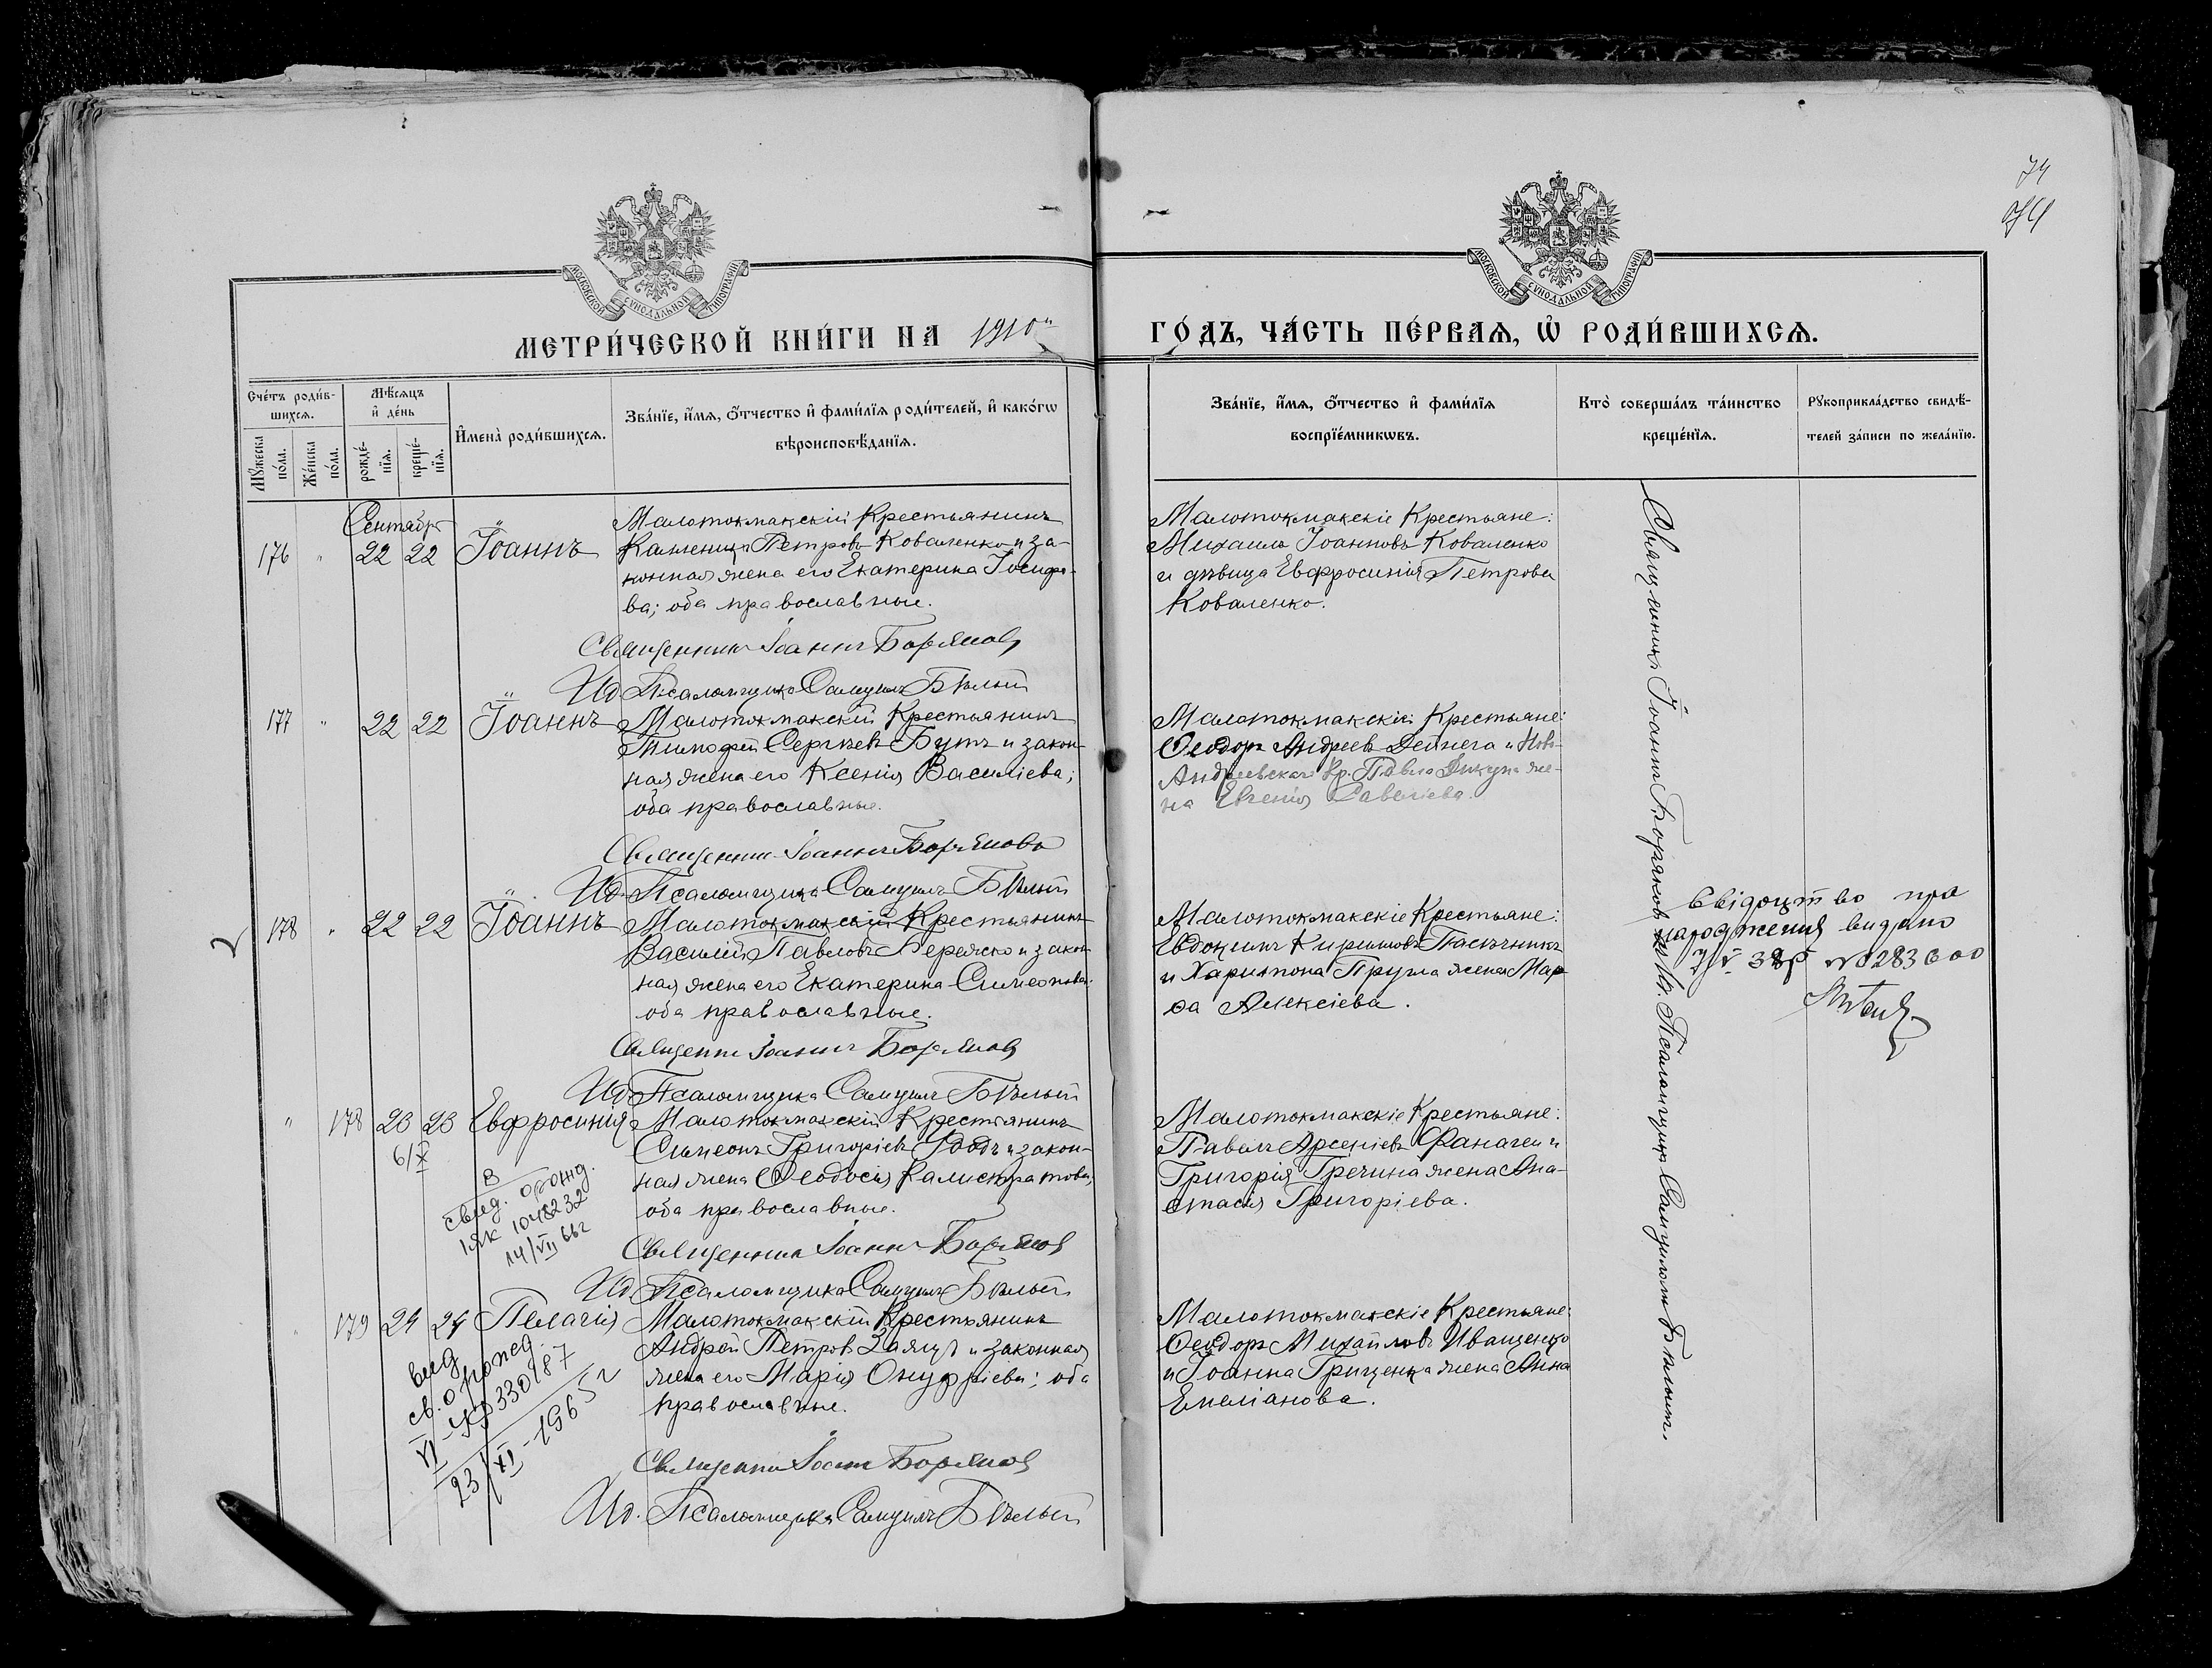 74
74
МОСКОВСКОЙ СѴНОДАЛЬНОЙ ТИПОГРАФІИ
МОСКОВСКОЙ СѴНОДАЛЬНОЙ ТИПОГРАФІИ
МЕТРИ́ЧЕСКОЙ КНИ́ГИ НА 1910й
ГО́ДЪ, ЧА́СТЬ ПЕ́РВАѦ, Ѡ҆ РОДИ́ВШИХСѦ.
Сче́тъ роди́в-
шихсѧ.
Мꙋ́жеска по́ла.
Же́нска по́ла.
Мѣ́сѧцъ
и҆ де́нь
рожде́-
нїѧ.
креще́-
нїѧ.
И҆мена̀ роди́вшихсѧ.
Зва́нїе, и҆́мѧ, ѻ҆́тчество и҆ фами́лїѧ роди́телей, и҆ како́гѡ
вѣроисповѣ́данїѧ.
Зва́нїе, и҆́мѧ, ѻ҆́тчество и҆ фами́лїѧ
воспрїе́мникѡвъ.
Кто̀ соверша́лъ та́инство
креще́нїѧ.
Рꙋкоприкла́дство свидѣ́-
телей за́писи по жела́нїю.
Сентябрь
176 " 22 22 Іоаннъ
Малотокмакскій Крестьянинъ
Петровъ Коваленко и за-
конная жена его Екатерина Іосифо-
ва; оба православные.
Священникъ Іоаннъ Боряновъ
Ид. Псаломщика Самуилъ Бѣлый
Малотокмакскіе Крестьяне:
Михаилъ Іоанновъ Коваленко
и дѣвица Евфросинія Петрова
Коваленко.
177 " 22 22 Іоаннъ
Малотокмакскій Крестьянинъ
Тимофей Сергѣевъ Бутъ и закон-
ная жена его Ксенія Василіева;
оба православные.
Священникъ Іоаннъ Боряновъ
Ид. Псаломщика Самуилъ Бѣлый
Малотокмакскіе Крестьяне:
Ѳеодоръ Андреевъ Дейнега и Ново-
Андреевскаго Кр. Павла Дикуна же-
на Евгенія Савеліева.
178 " 22 22 Іоаннъ
Малотокмакскій Крестьянинъ
Василій Павловъ Бережко и закон-
ная жена его Екатерина Симеонова
оба православные.
Священникъ Іоаннъ Боряновъ
Ид. Псаломщика Самуилъ Бѣлый
Малотокмакскіе Крестьяне:
Евдокимъ Кириловъ Пасѣчникъ
и Харитона Пругла жена Мар-
ѳа Алексіева.
Свідоцтво про
народження видано
№ 283600
" 178 23 23 Евфросинія
6/X
В
свид. о рожд.
1ЯК 1048232
14/VII 66г
Малотокмакскій Крестьянинъ
Симеонъ Григоріевъ и закон-
ная жена Ѳеодосія Калистратова;
оба православные.
Священникъ Іоаннъ Боряновъ
Ид. Псаломщика Самуилъ Бѣлый
Малотокмакскіе Крестьяне:
Павелъ Арсеніевъ и
Григорія Гречина жена Ана-
стасія Григоріева.
" 179 24 24 Пелагія
выд
св. о рожд
VI-ЧКР 330187
23/XI-1965 г
Малотокмакскій Крестьянинъ
Андрей Петровъ Заяцъ и законная
жена его Марія Онуфріева; оба
православные.
Священникъ Іоаннъ Боряновъ
Ид. Псаломщика Самуилъ Бѣлый
Малотокмакскіе Крестьяне:
Ѳеодоръ Михайловъ Иващенко
и Іоанна Грищенка жена Анна
Емеліанова.
Священникъ Іоаннъ Боряновъ съ Ид. Псаломщика Самуиломъ Бѣлымъ.